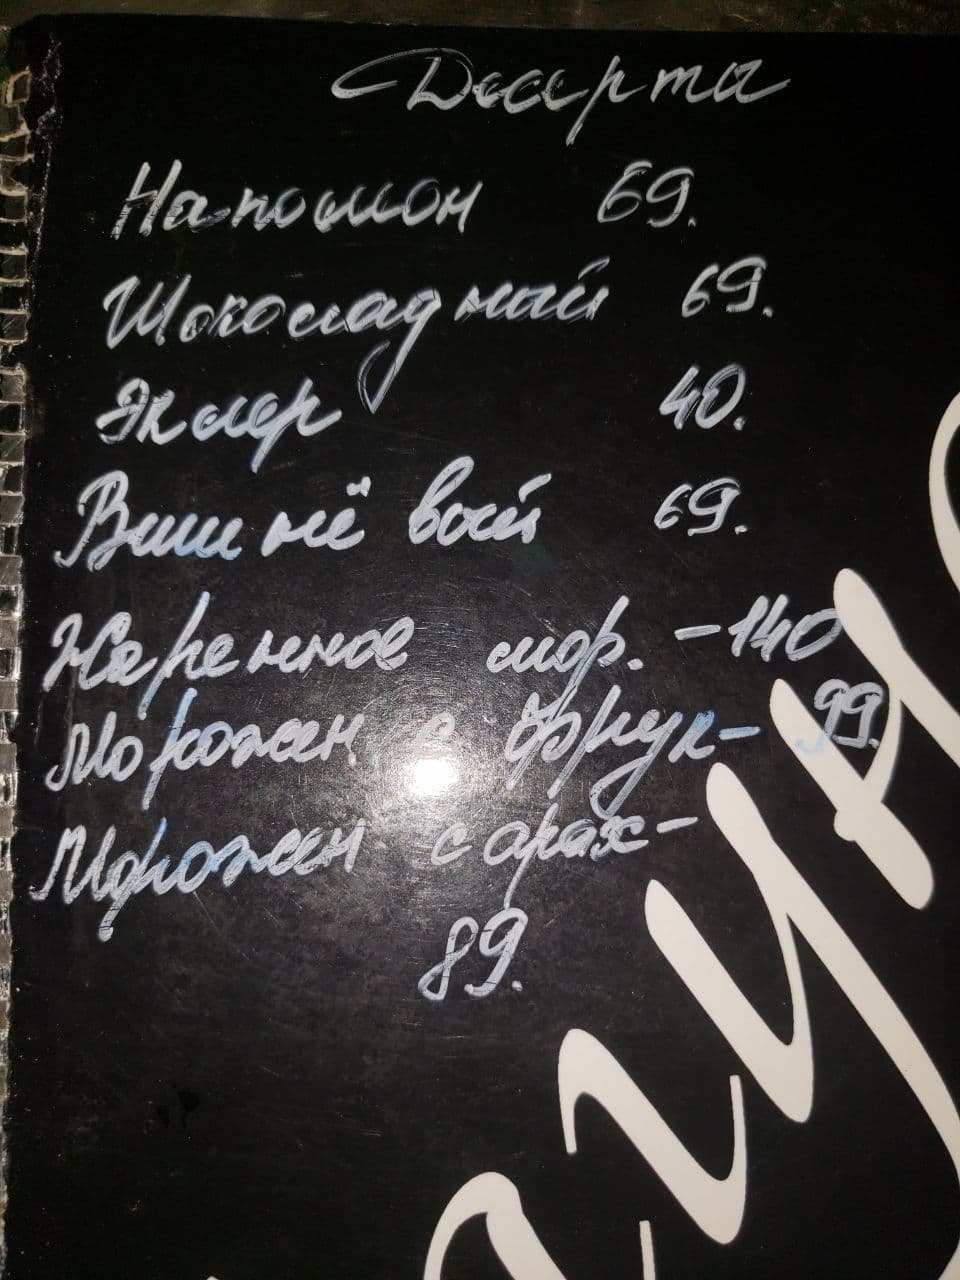 Десерты
Наполеон 69.
Шоколадный 69.
Эклер 40.
Вишнёвый 69.
Жаренное мор. - 140
Морожен. с фрук- 99.
Морожен с арах-
89.